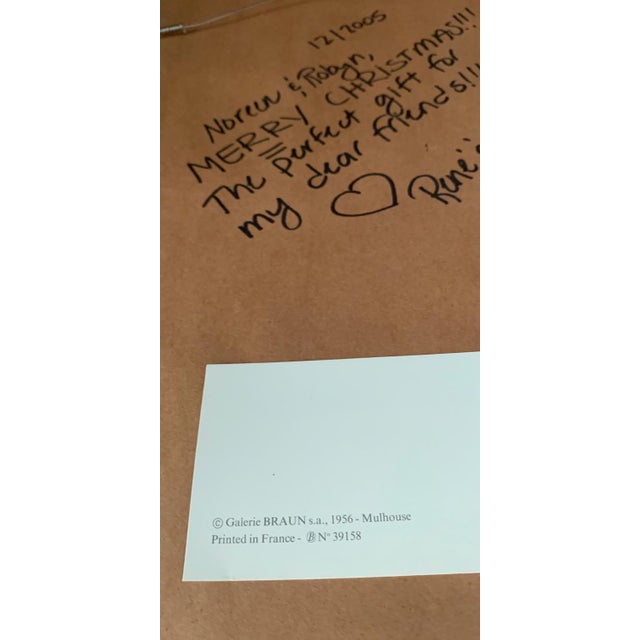 12/2005
Noreen & Robyn,
MERRY CHRISTMAS!!!
The perfect gift for
my dear friends!!!
♡ René
© Galerie BRAUN s.a., 1956 - Mulhouse
Printed in France - B N° 39158